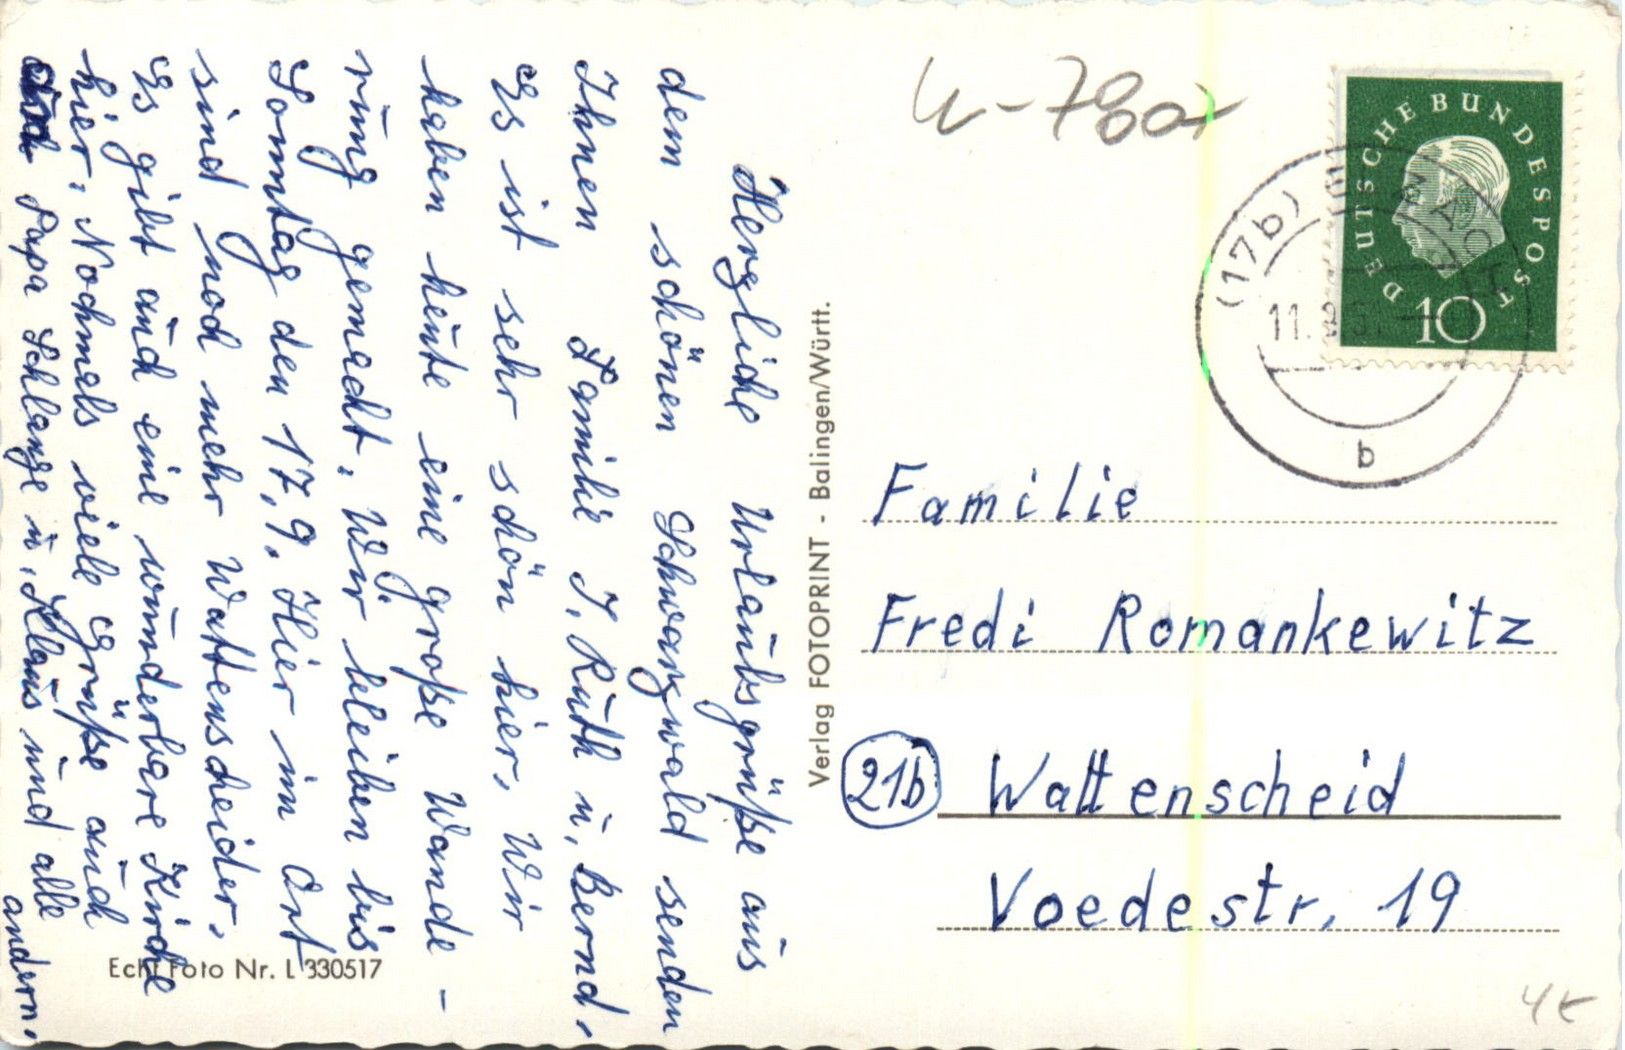 Herzliche Urlaubsgrüße aus
dem schönen Schwarzwald senden
Ihnen Familie J. Ruth u. Bernd.
Es ist sehr schön hier. Wir
haben heute eine große Wande-
rung gemacht. Wir bleiben bis
Sonntag den 17.9. Hier im Ort
sind noch mehr Wattenscheider.
Es gibt auch eine wunderbare Kirche
hier. Nochmals viele Grüße auch
Papa Schlange u. Klaus und alle
andern.
Echt Foto Nr. L 330517
Verlag FOTOPRINT - Balingen/Württ.
DEUTSCHE BUNDESPOST
10
(17b)
11.
b
Familie
Fredi Romankewitz
21b Wattenscheid
Voedestr. 19